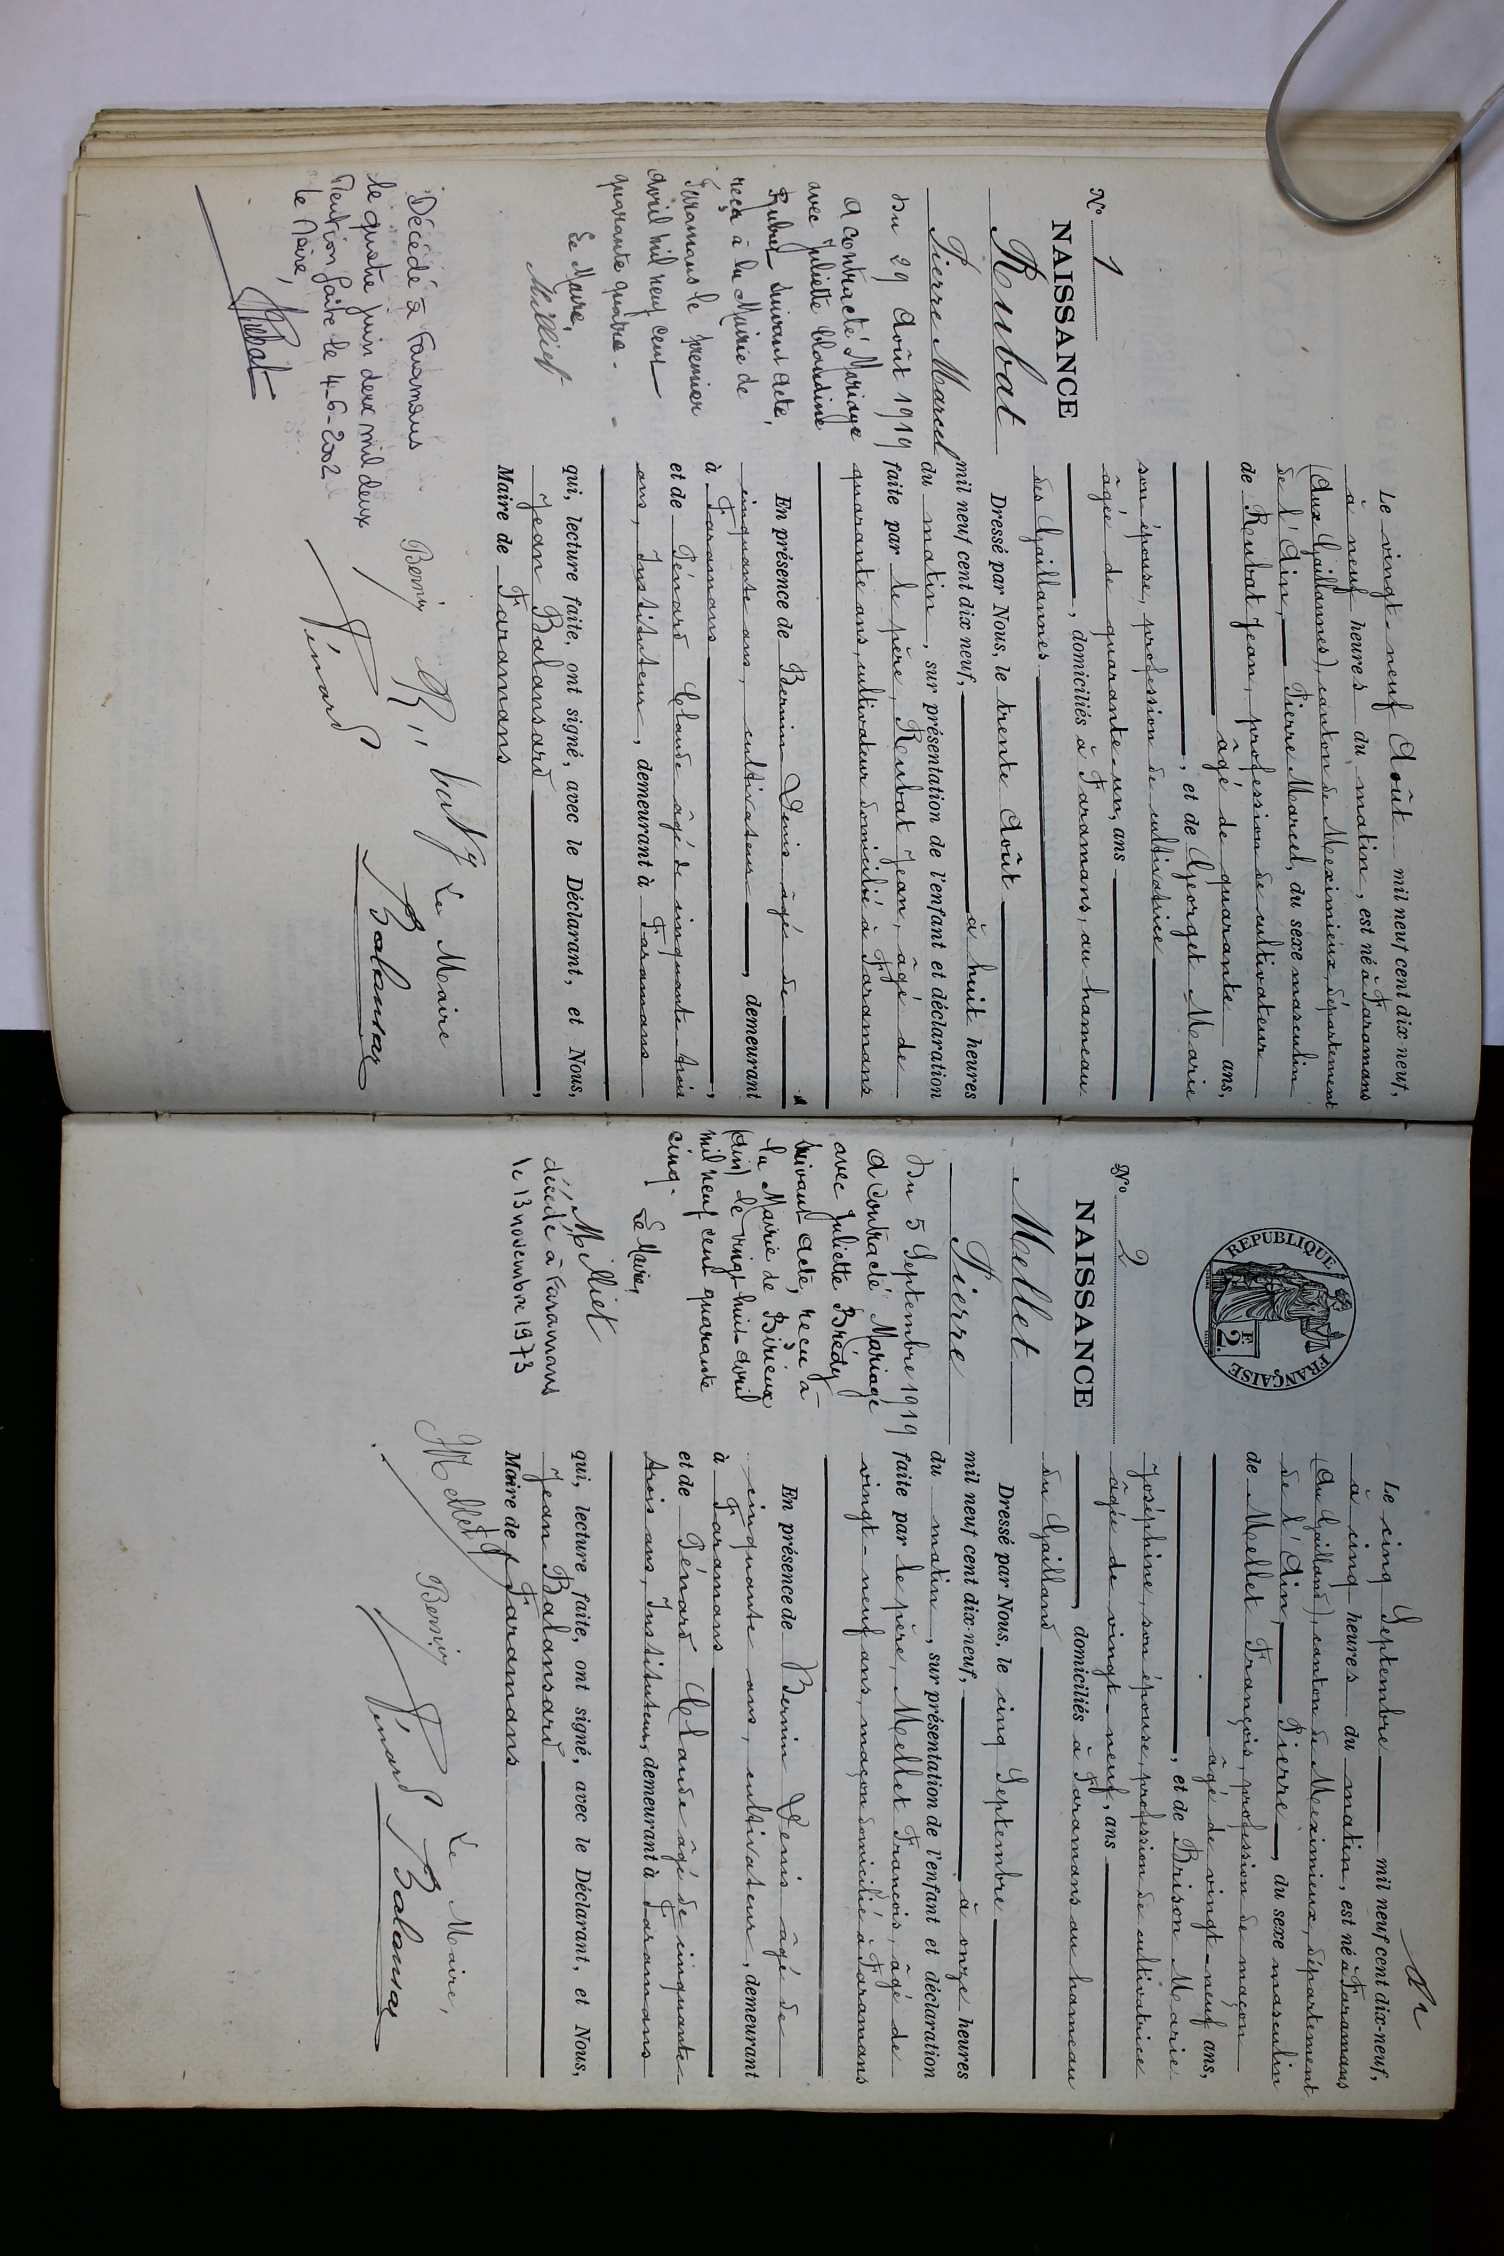 N° 1
NAISSANCE
Rubat
Pierre Marcel
du 29 Août 1919
a contracté Mariage
avec Juliette Claudine
Rubat suivant acte,
reçu à la Mairie de
Faramans le premier
avril mil neuf cent
quarante quatre.
Le Maire,
Milliet
Décédé à Faramans
le quatre juin deux mil deux
Mention faite le 4-6-2002
Le Maire,
Le vingt-neuf Août mil neuf cent dix-neuf,
à neuf heures du matin, est né à Faramans
(Aux Gaillannes), canton de Meximieux, département
de l'Ain, Pierre Marcel, du sexe masculin
de Rubat Jean, profession de cultivateur
âgé de quarante ans,
, et de Georget Marie
son épouse, profession de cultivatrice
âgée de quarante-un, ans
, domiciliés à Faramans, au hameau
des Gaillannes
Dressé par Nous, le trente Août
mil neuf cent dix neuf, à huit heures
du matin, sur présentation de l'enfant et déclaration
faite par le père, Rubat Jean, âgé de
quarante ans, cultivateur domicilié à Faramans
En présence de Bernin Denis âgé de
cinquante ans, cultivateur, demeurant
à Faramans,
et de Pénard Claude âgé de cinquante-trois
ans, Instituteur, demeurant à Faramans
qui, lecture faite, ont signé, avec le Déclarant, et Nous,
Jean Balansard,
Maire de Faramans
Bernin
Le Maire
Pénard
Balansard
N° 2
REPUBLIQUE FRANÇAISE
2 F.
NAISSANCE
Mellet
Pierre
du 5 Septembre 1919
a contracté Mariage
avec Juliette Brédy
suivant acte, reçu à
la Mairie de Birieux
(Ain) le vingt-huit avril
mil neuf cent quarante
cinq.
Le Maire,
Milliet
décédé à Faramans
le 13 novembre 1973
Le cinq Septembre mil neuf cent dix-neuf,
à cinq heures du matin, est né à Faramans
(Au Gailland), canton de Meximieux, département
de l'Ain, Pierre, du sexe masculin
de Mellet François, profession de maçon
âgé de vingt-neuf ans,
, et de Brison Marie
Joséphine, son épouse, profession de cultivatrice
âgée de vingt-neuf, ans
, domiciliés à Faramans au hameau
du Gailland
Dressé par Nous, le cinq Septembre
mil neuf cent dix-neuf, à onze heures
du matin, sur présentation de l'enfant et déclaration
faite par le père, Mellet François, âgé de
vingt-neuf ans, maçon domicilié à Faramans
En présence de Bernin Denis âgé de
cinquante ans, cultivateur, demeurant
à Faramans
et de Pénard Claude âgé de cinquante-
trois ans, Instituteur, demeurant à Faramans
qui, lecture faite, ont signé, avec le Déclarant, et Nous,
Jean Balansard
Maire de Faramans
Mellet F
Bernin
Le Maire,
Pénard
Balansard